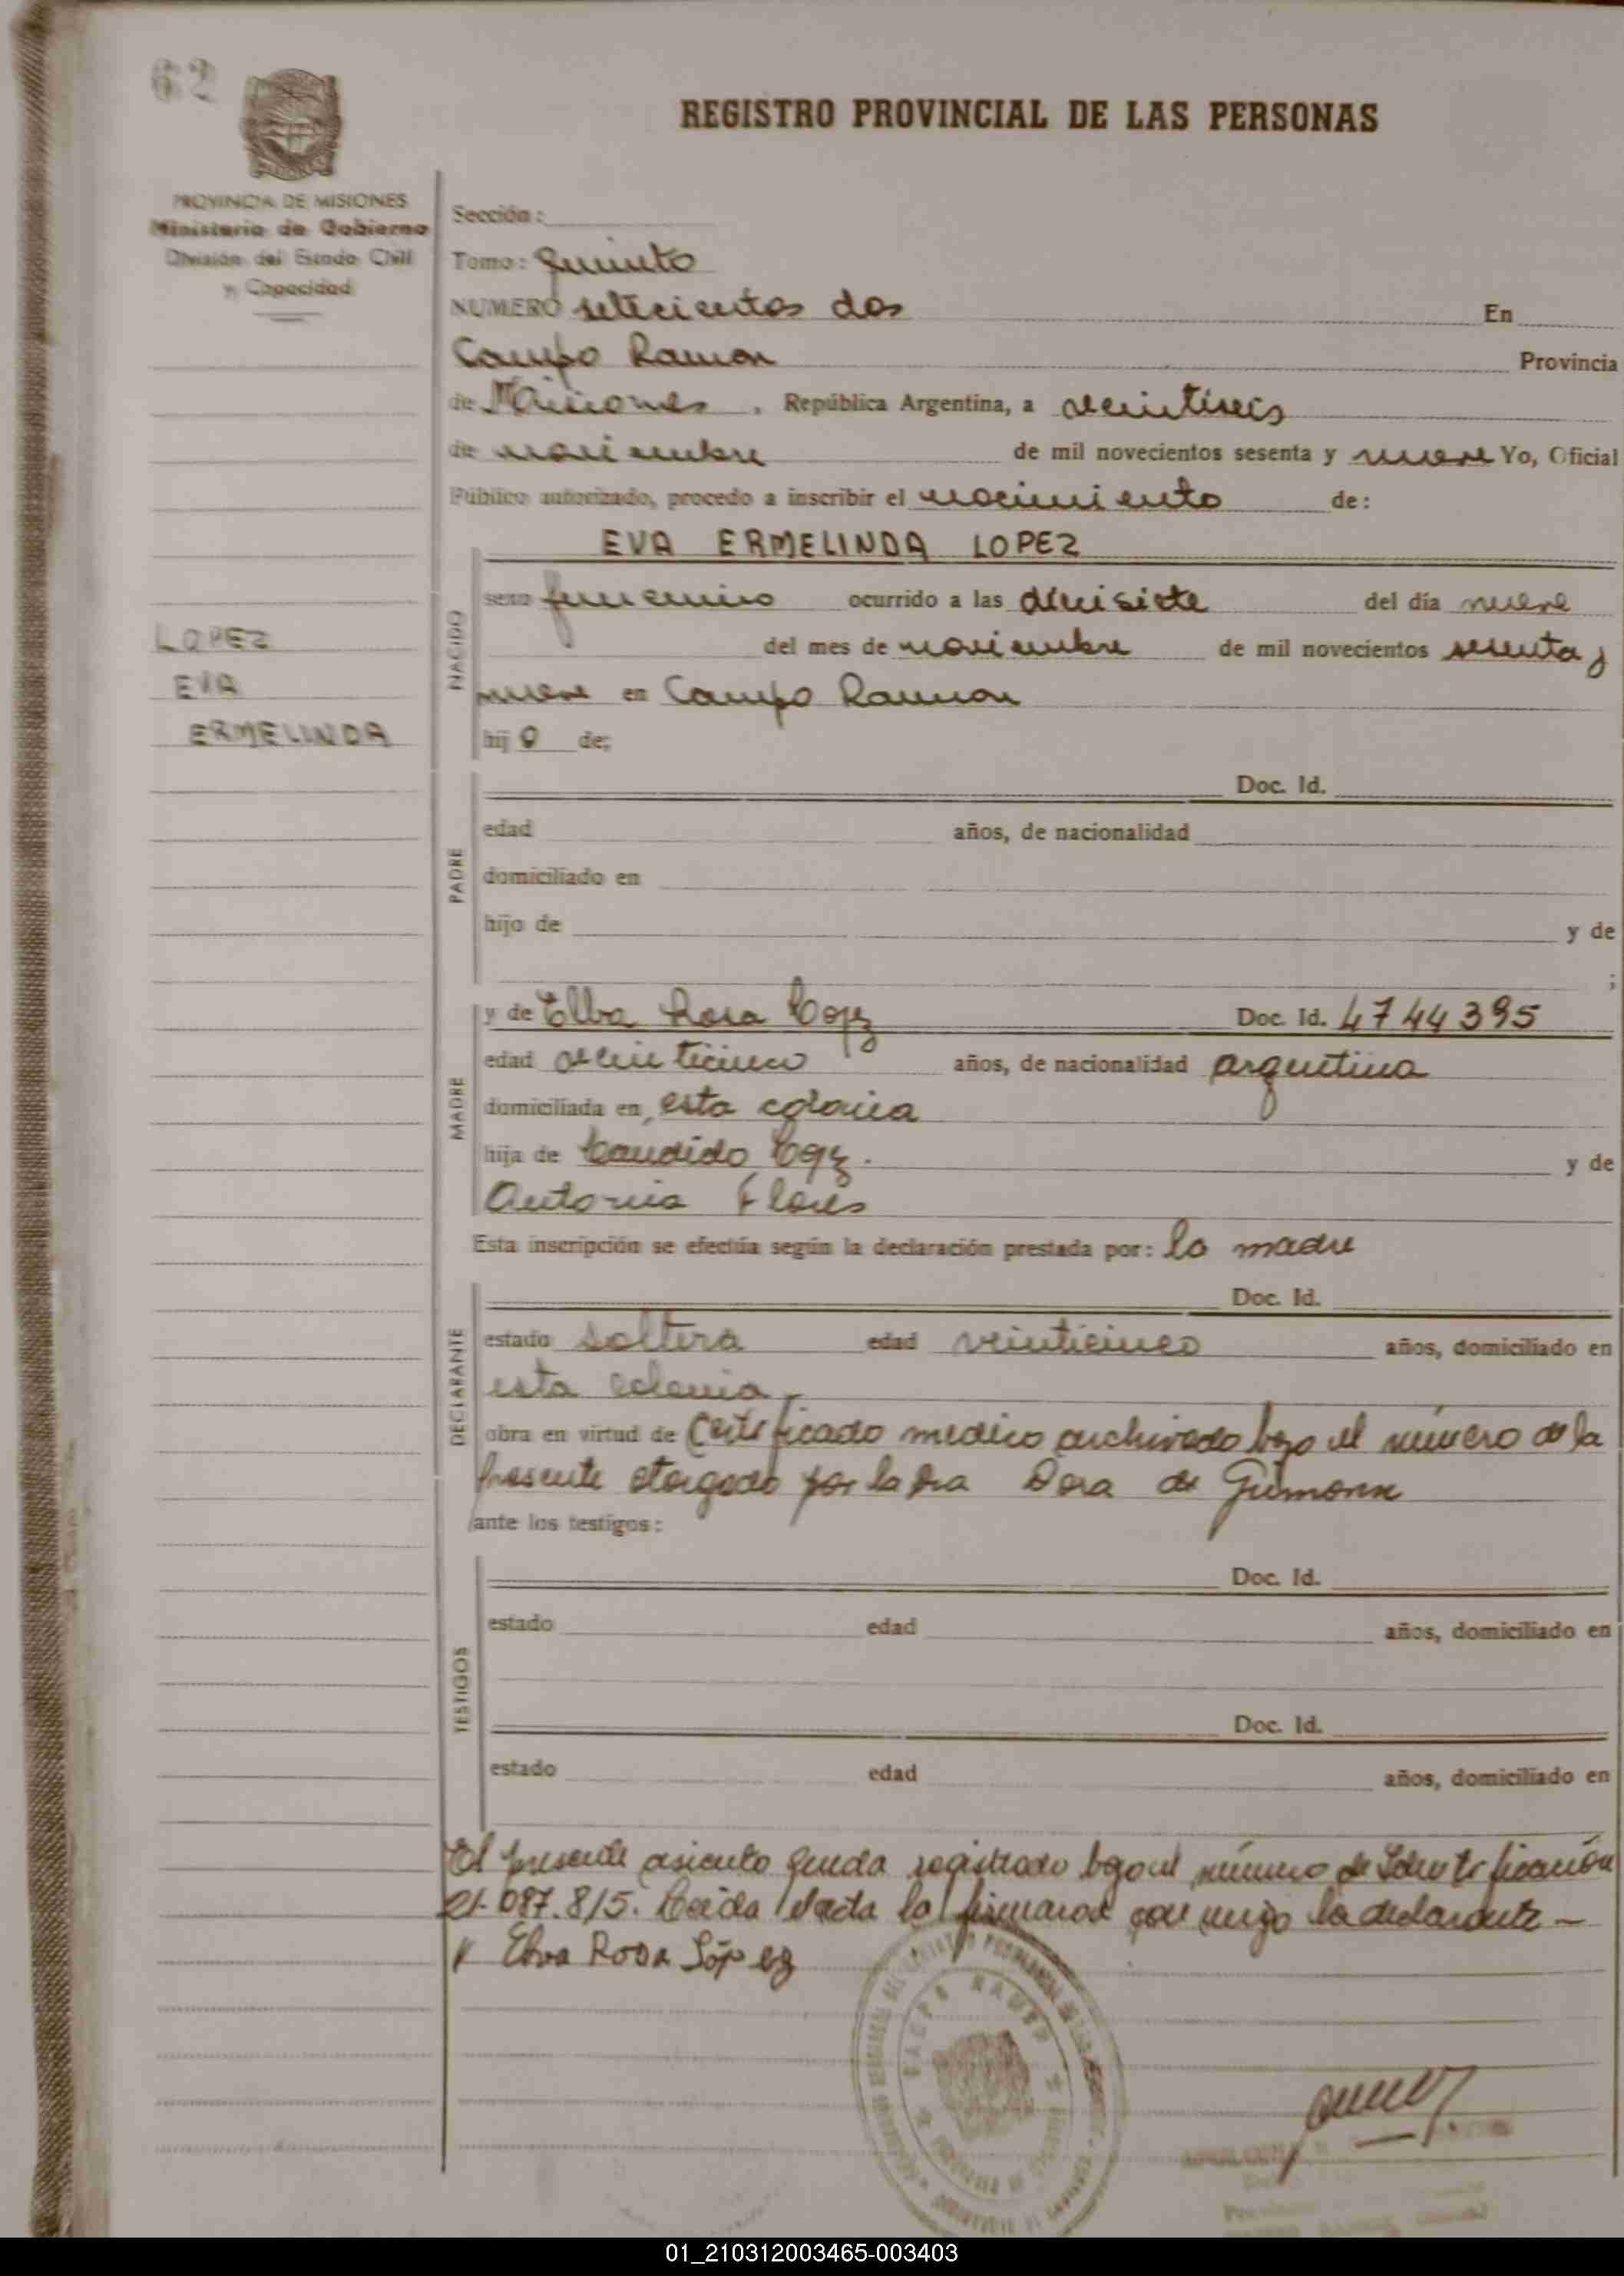 62
REGISTRO PROVINCIAL DE LAS PERSONAS
PROVINCIA DE MISIONES
Ministerio de Gobierno
División del Estado Civil
y Capacidad
Sección:
Tomo: quinto
NUMERO setecientos dos En
Campo Ramon Provincia
de Misiones, República Argentina, a veintiseis
de noviembre de mil novecientos sesenta y nueve Yo, Oficial
Público autorizado, procedo a inscribir el nacimiento de:
EVA ERMELINDA LOPEZ
NACIDO
sexo femenino ocurrido a las diecisiete del día nueve
del mes de noviembre de mil novecientos sesenta y
nueve en Campo Ramon
hij a de;
LOPEZ
EVA
ERMELINDA
PADRE
Doc. Id.
edad años, de nacionalidad
domiciliado en
hijo de y de
;
MADRE
y de Elba Rosa Lopez Doc. Id. 4744395
edad veinticinco años, de nacionalidad argentina
domiciliada en esta colonia
hija de Candido Lopez. y de
Antonia Flores
Esta inscripción se efectúa según la declaración prestada por: la madre
DECLARANTE
Doc. Id.
estado soltera edad veinticinco años, domiciliado en
esta colonia
obra en virtud de Certificado medico archivado bajo el número de la
presente otorgado por la Dra Dora de
ante los testigos:
TESTIGOS
Doc. Id.
estado edad años, domiciliado en
Doc. Id.
estado edad años, domiciliado en
El presente asiento queda registrado bajo el número de Identificación
21.087.815. Leida el acta la firmaron con migo la declarante —
Elva Rosa López
CAMPO RAMON
01_210312003465-003403